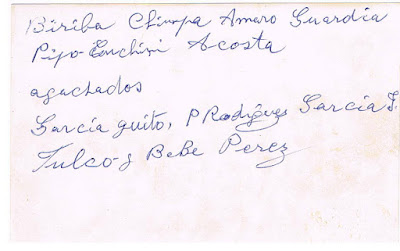 Biriba Chimpa Amaro Guardia
Pipo Enchini Acosta
agachados
Garcia guito, P Rodriguez Garcia F.
Tulco y Bebe Perez